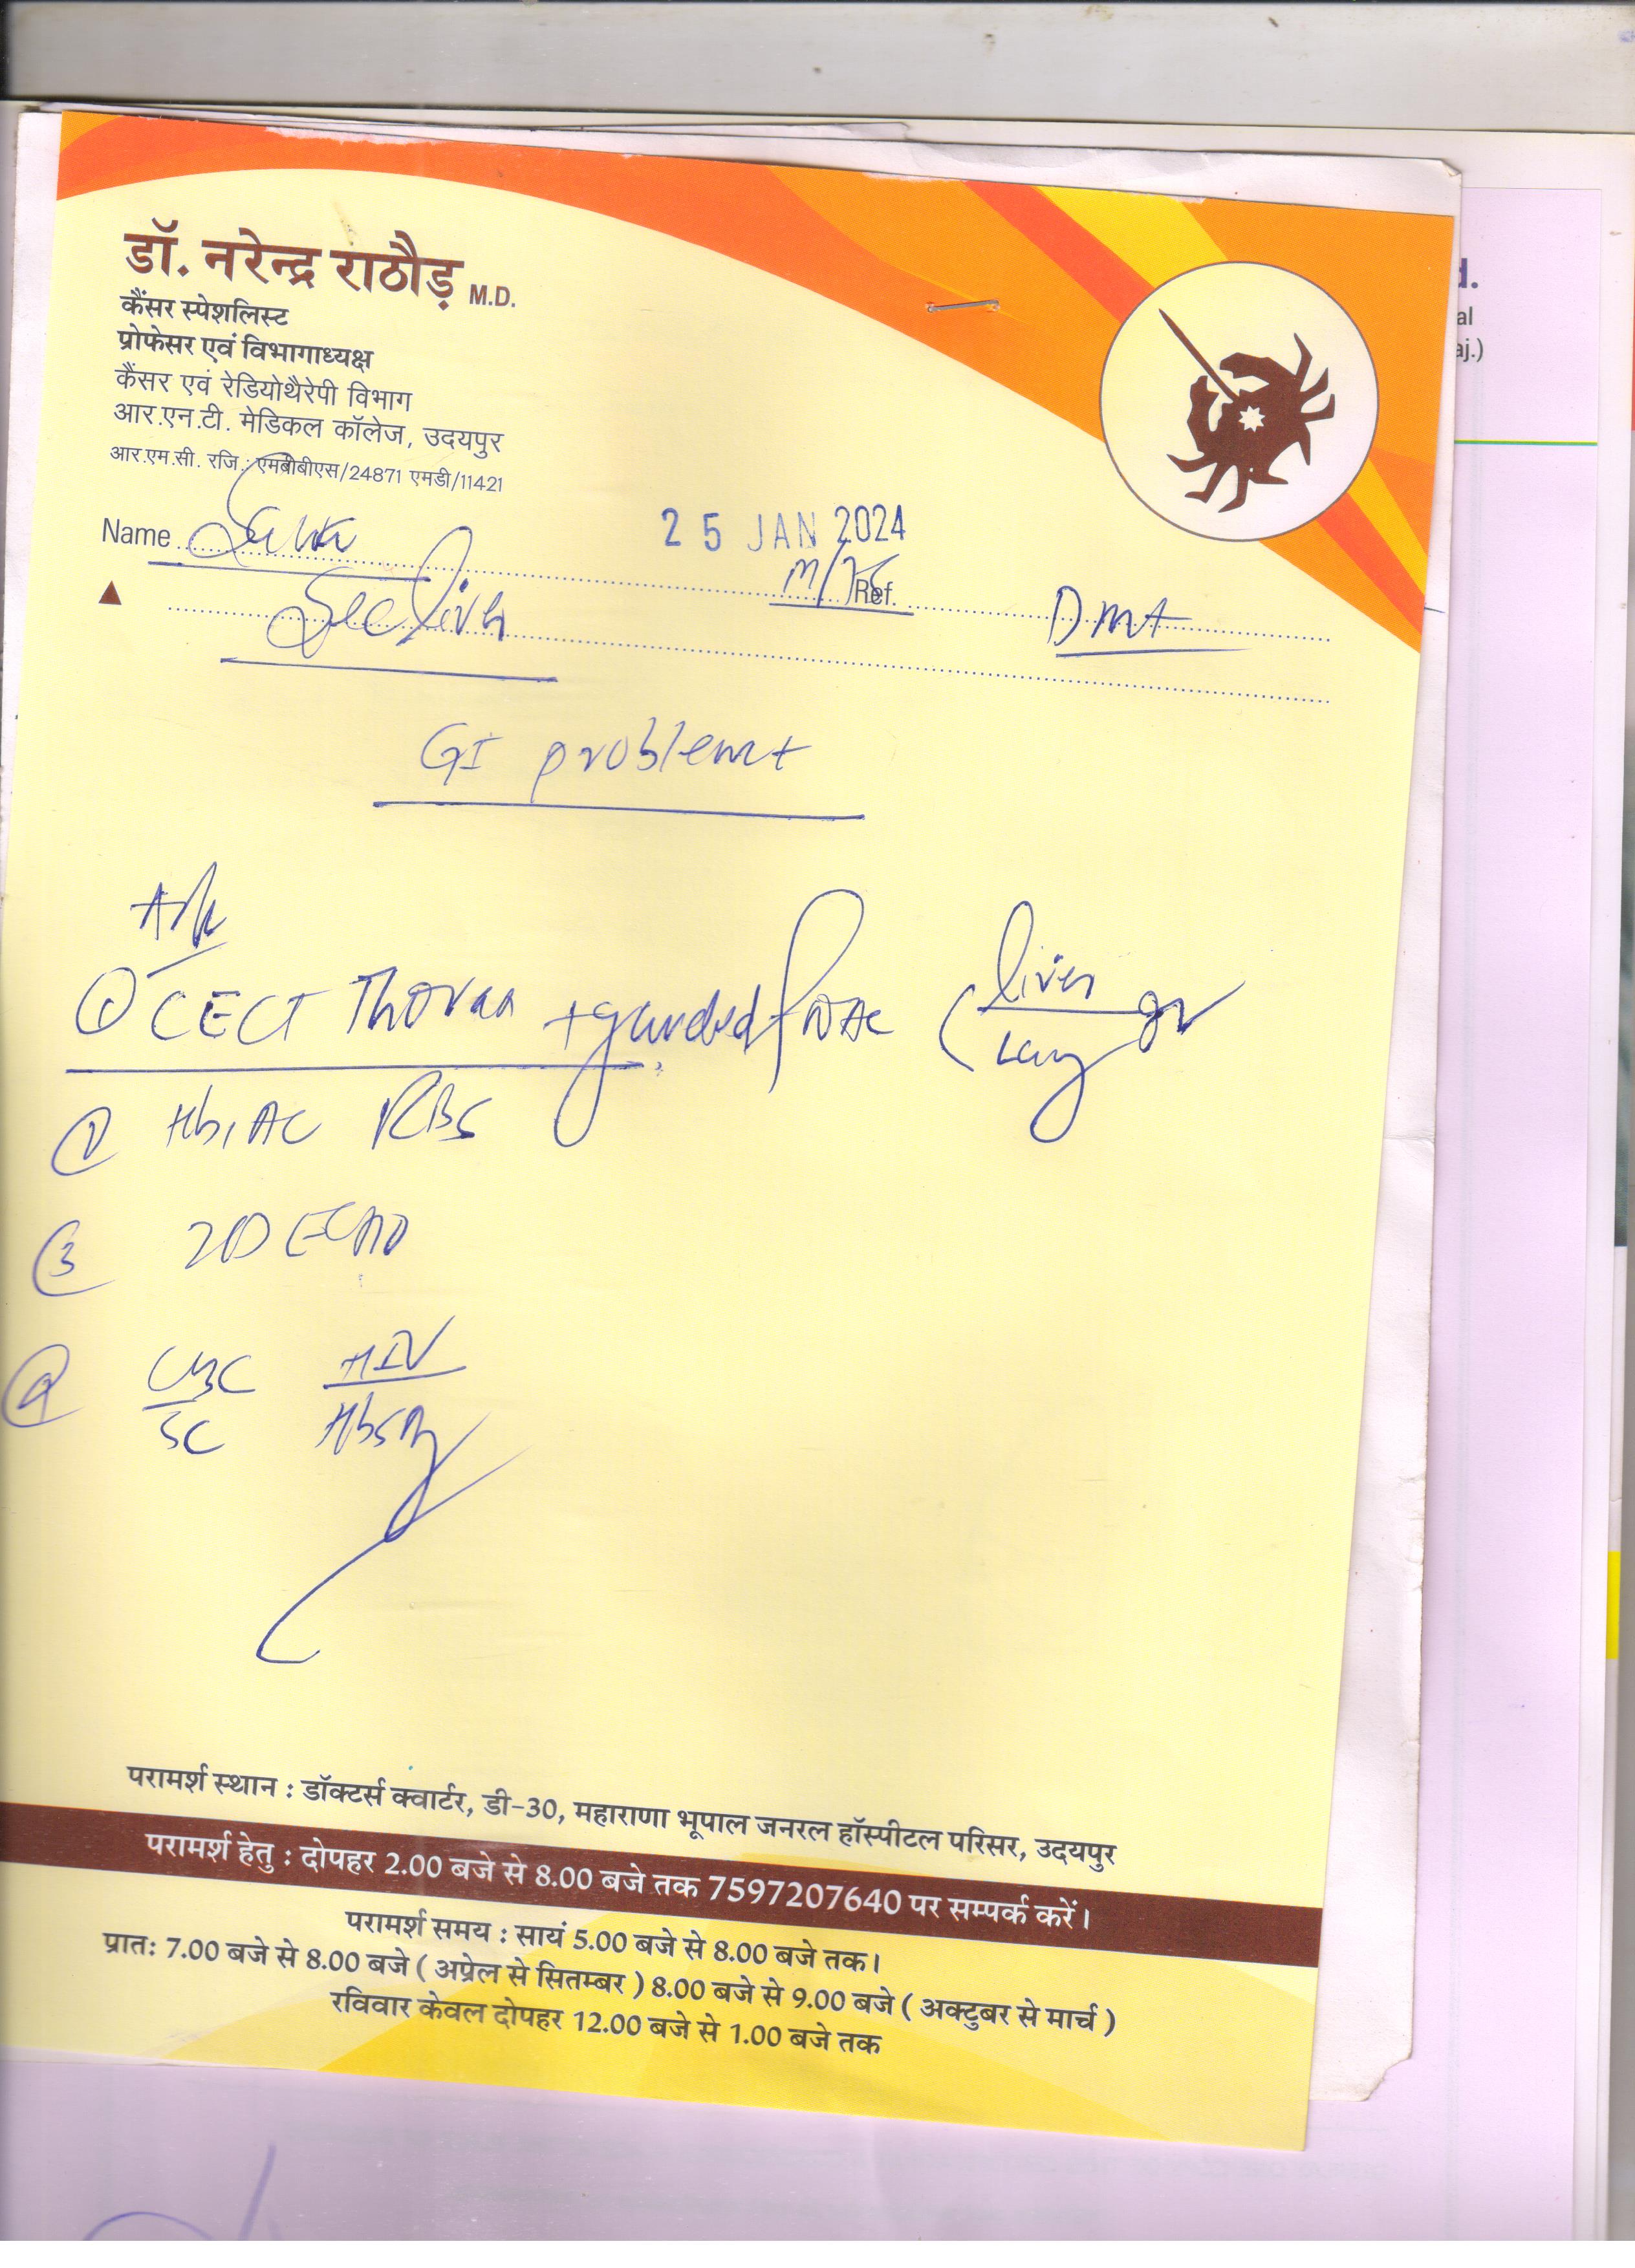 डॉ. नरेन्द्र राठौड़ M.D.
कैंसर स्पेशलिस्ट
प्रोफेसर एवं विभागाध्यक्ष
कैंसर एवं रेडियोथैरेपी विभाग
आर.एन.टी. मेडिकल कॉलेज, उदयपुर
आर.एम.सी. रजि.: एमबीबीएस/24871 एमडी/11421
d.
al
aj.)
25 JAN 2024
Name M/75 Ref.
Sec liver Dm+
GI problem+
① CECT Thorax + guided FNAC (liver or
Lung
② Hb1AC RBS
③ 2D ECHO
④ CBC HIV
SC HbsAg
परामर्श स्थान : डॉक्टर्स क्वार्टर, डी-30, महाराणा भूपाल जनरल हॉस्पीटल परिसर, उदयपुर
परामर्श हेतु : दोपहर 2.00 बजे से 8.00 बजे तक 7597207640 पर सम्पर्क करें।
परामर्श समय : सायं 5.00 बजे से 8.00 बजे तक।
प्रातः 7.00 बजे से 8.00 बजे ( अप्रेल से सितम्बर ) 8.00 बजे से 9.00 बजे ( अक्टुबर से मार्च )
रविवार केवल दोपहर 12.00 बजे से 1.00 बजे तक